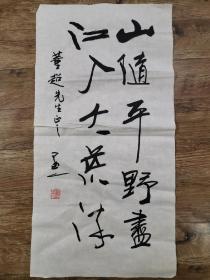 山随平野盡
江入大荒流
董超先生正之